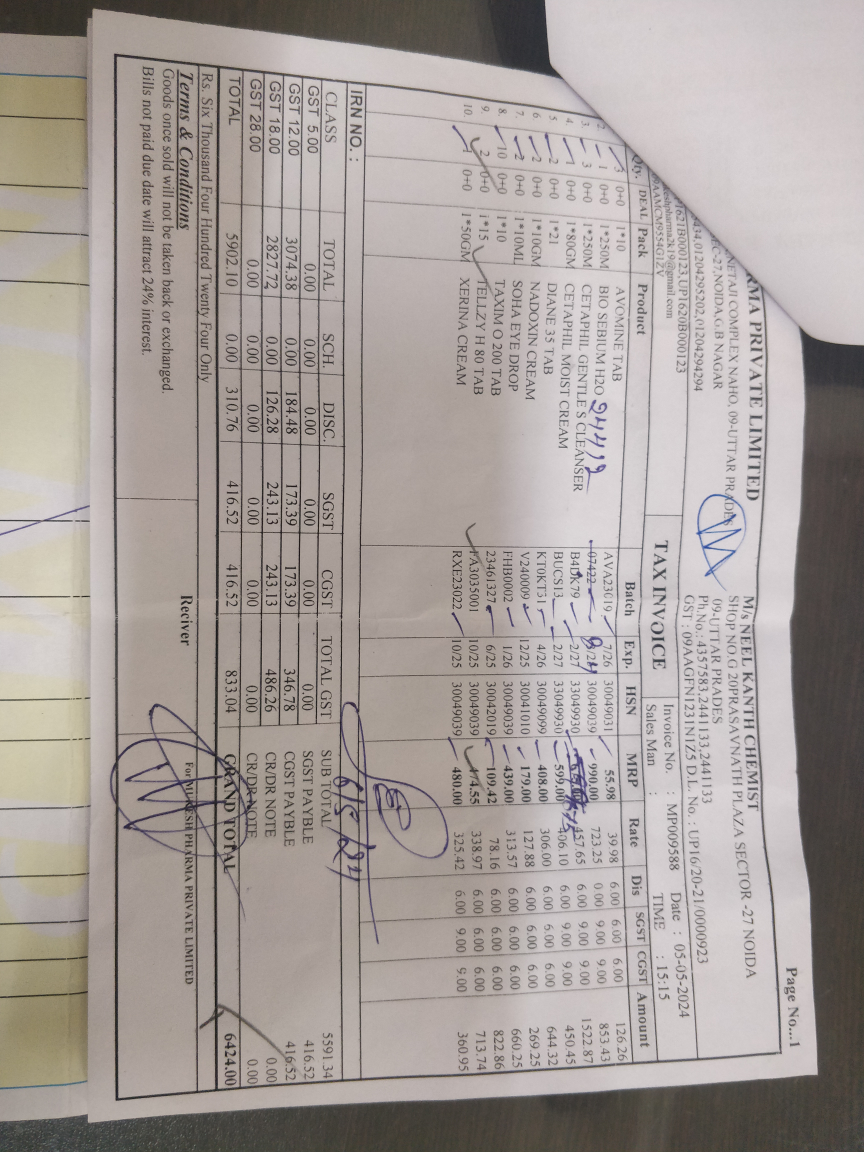 Page No...1
RMA PRIVATE LIMITED
NETAJI COMPLEX NAHO, 09-UTTAR PRADES
C-27,NOIDA,G.B NAGAR
434,01204295202,01204294294
P1621B000123,UP1620B000123
eshpharma2k19@gmail.com
9AAMCM9554G1ZV
M/s NEEL KANTH CHEMIST
SHOP NO.G 20PRASAVNATH PLAZA SECTOR -27 NOIDA
09-UTTAR PRADES
Ph.No.: 4357583,2441133,2441133
GST : 09AAGFN1231N1Z5 D.L. No.: UP16/20-21/0000923
TAX INVOICE
Invoice No. : MP009588 Date : 05-05-2024
Sales Man : TIME : 15:15
Qty. DEAL Pack Product Batch Exp. HSN MRP Rate Dis SGST CGST Amount
3 0+0 1*10 AVOMINE TAB AVA23019 7/26 30049031 55.98 39.98 6.00 6.00 6.00 126.26
2. 1 0+0 1*250M BIO SEBIUM H2O 24412 07422 30049039 990.00 723.25 0.00 9.00 9.00 853.43
3. 3 0+0 1*250M CETAPHIL GENTLE S CLEANSER B4DK79 2/27 33049930 457.65 6.00 9.00 9.00 1522.87
4. 1 0+0 1*80GM CETAPHIL MOIST CREAM BUCS13 2/27 33049930 599.00 406.10 6.00 9.00 9.00 450.45
5. 2 0+0 1*21 DIANE 35 TAB KT0KT31 4/26 30049099 408.00 306.00 6.00 6.00 6.00 644.32
6. 2 0+0 1*10GM NADOXIN CREAM V240009 12/25 30041010 179.00 127.88 6.00 6.00 6.00 269.25
7. 2 0+0 1*10ML SOHA EYE DROP FHB0002 1/26 30049039 439.00 313.57 6.00 6.00 6.00 660.25
8. 10 0+0 1*10 TAXIM O 200 TAB 23461327 6/25 30042019 109.42 78.16 6.00 6.00 6.00 822.86
9. 2 0+0 1*15 TELLZY H 80 TAB FA3035001 10/25 30049039 474.55 338.97 6.00 6.00 6.00 713.74
10. 1 0+0 1*50GM XERINA CREAM RXE23022 10/25 30049039 480.00 325.42 6.00 9.00 9.00 360.95
6/5/24
IRN NO. :
CLASS TOTAL SCH. DISC. SGST CGST TOTAL GST
GST 5.00 0.00 0.00 0.00 0.00 0.00 0.00
GST 12.00 3074.38 0.00 184.48 173.39 173.39 346.78
GST 18.00 2827.72 0.00 126.28 243.13 243.13 486.26
GST 28.00 0.00 0.00 0.00 0.00 0.00 0.00
TOTAL 5902.10 0.00 310.76 416.52 416.52 833.04
SUB TOTAL 5591.34
SGST PAYBLE 416.52
CGST PAYBLE 416.52
CR/DR NOTE 0.00
CR/DR NOTE 0.00
GRAND TOTAL 6424.00
Rs. Six Thousand Four Hundred Twenty Four Only
Terms & Conditions
Goods once sold will not be taken back or exchanged.
Bills not paid due date will attract 24% interest.
Reciver
For MUKESH PHARMA PRIVATE LIMITED